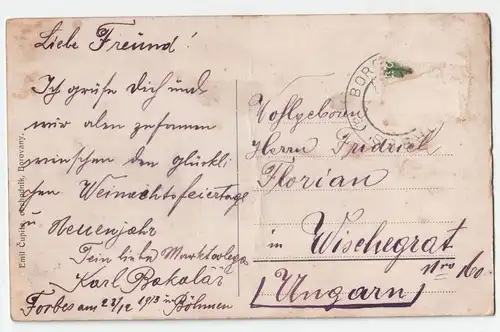 Liebe Freund!
Ich grüße Dich und
wir alen zusamen
winschen den glückli
chen Weinachtsfeiertage
u Neuenjahr
Dein liebe
Karl Bakalář
Forbes am 22/12 1913 in Böhmen
Emil Čapita, obchodník, Borovany.
BORO
Wohlgeborn
Herrn Fridrich
Florian
in Wischegrat
No 160
Ungarn